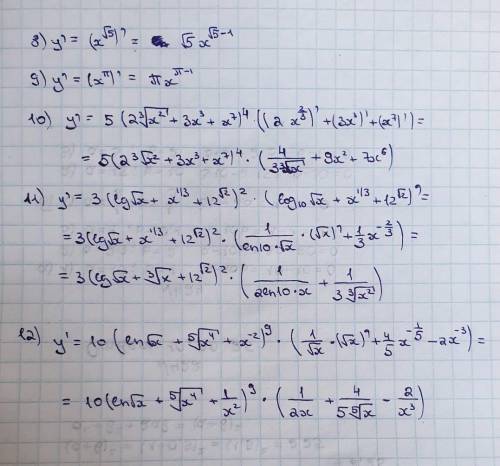 8) y' = (x^√5)' = √5 x^(√5-1)
9) y' = (x^π)' = πx^(π-1)
10) y' = 5 (2∛x² + 3x³ + x⁷)⁴ · ((2 x^(2/3))' + (3x³)' + (x⁷)') =
= 5(2∛x² + 3x³ + x⁷)⁴ · (4/(3∛x) + 9x² + 7x⁶)
11) y' = 3 (lg√x + x^(1/3) + 12^√2)² · (log₁₀√x + x^(1/3) + 12^√2)' =
= 3(lg√x + x^(1/3) + 12^√2)² · (1/(ln10·√x) · (√x)' + 1/3 x^(-2/3)) =
= 3(lg√x + ∛x + 12^√2)² · (1/(2ln10·x) + 1/(3∛x²))
12) y' = 10 (ln√x + ⁵√x⁴ + x⁻²)⁹ · (1/√x · (√x)' + 4/5 x^(-1/5) - 2x⁻³) =
= 10(ln√x + ⁵√x⁴ + 1/x²)⁹ · (1/(2x) + 4/(5⁵√x) - 2/x³)